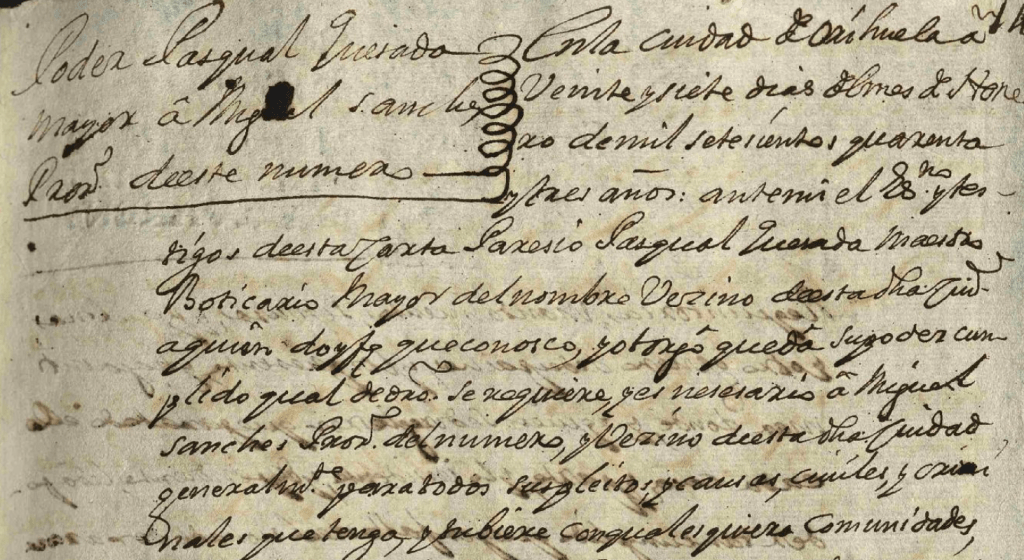 Poder Pasqual Quesada
mayor â Miguel sanches
Pror. deeste numero
Enla cuidad de orihuela a
Veinte y siete dias delmes de Hene
ro demil setesientos quarenta
y tres años: antemi el Essno. y tes-
tigos deesta Carta Paresio Pasqual Quesada Maestro
Boticario Mayor delnombre Vezino deesta dha Ziud.
aquien doy fe queconosco, yotorgô queda su poder cum-
plido qual de dro. se requiere, y es nesesario â Miguel
sanches Pror. del numero, y Vezino deesta dha Ziudad
generalmte. para todos sus pleitos y causas, ciuiles, y crimi
nales que tenga, y tubiere con qualesquiera Comunidades,